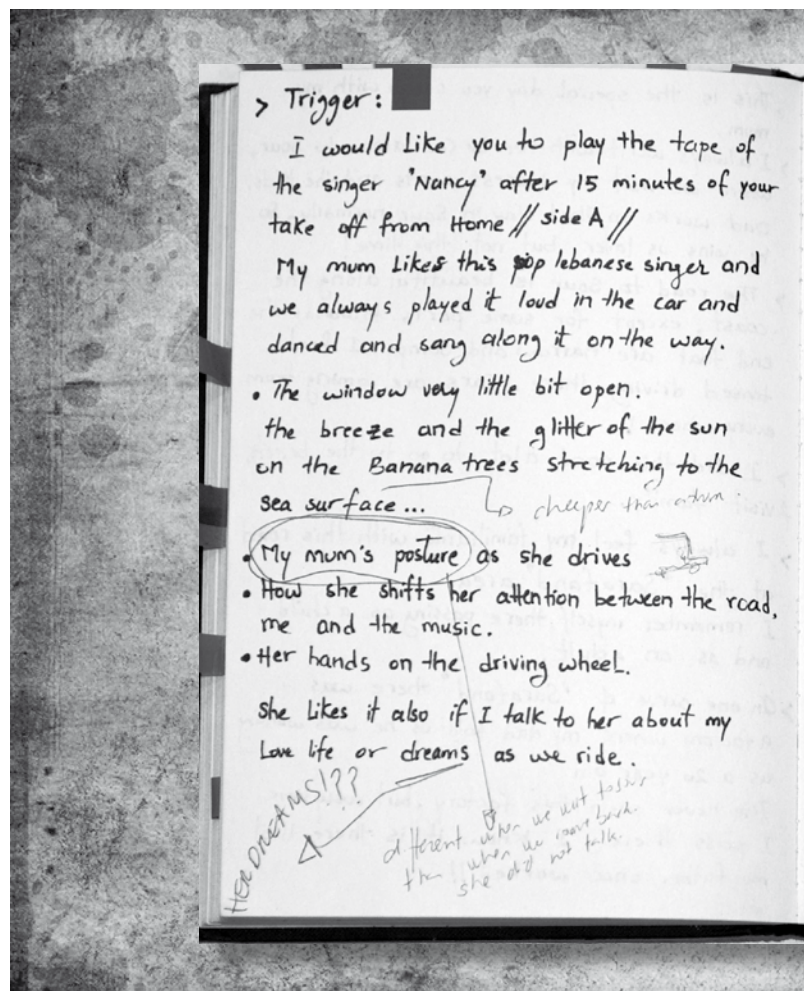 > Trigger:
I would Like you to play the tape of
the singer "Nancy" after 15 minutes of your
take off from Home // side A //
My mum Likes this pop lebanese singer and
we always played it loud in the car and
danced and sang along it on the way.
• The window very little bit open.
the breeze and the glitter of the sun
on the Banana trees stretching to the
sea surface...
cheeper than
• My mum's posture as she drives
• How she shifts her attention between the road,
me and the music.
• Her hands on the driving wheel.
She Likes it also if I talk to her about my
Love life or dreams as we ride.
HER DREAMS!??
different when we
than when we came back
she did not talk.